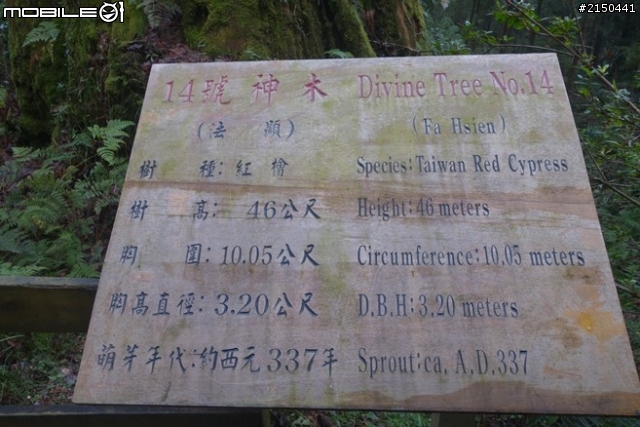 MOBILE01
#2150441
14號神木 Divine Tree No.14
(法顯) (Fa Hsien)
樹種:紅檜 Species:Taiwan Red Cypress
樹高: 46公尺 Height:46 meters
胸圍:10.05公尺 Circumference:10.05 meters
胸高直徑:3.20公尺 D.B.H:3.20 meters
萌芽年代:約西元337年 Sprout:ca. A.D.337